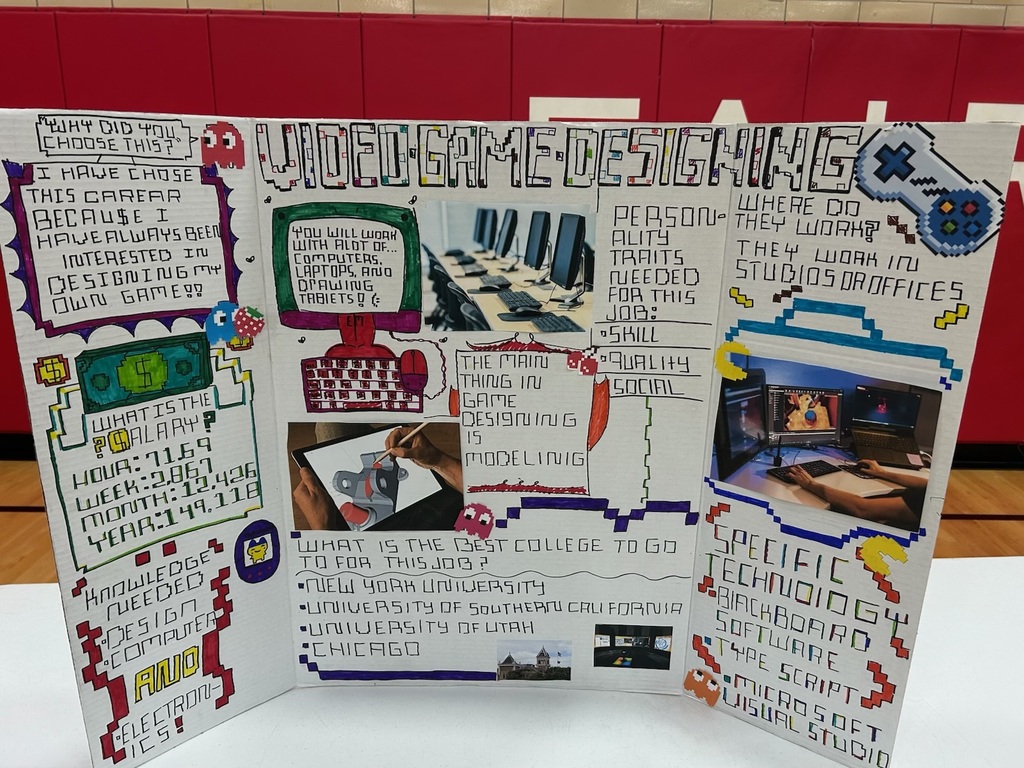 "WHY DID YOU
CHOOSE THIS?"
I HAVE CHOSE
THIS CAREAR
BECAU$E I
HAVE ALWAYS BEEN
INTERESTED IN
DESIGNING MY
OWN GAME!!
$
WHAT IS THE
?$ALARY?
HOUR: 71.69
WEEK: 2,867
MONTH: 12,426
YEAR: 149,118
KNOWLEDGE
NEEDED
DESIGN
COMPUTER
AND
ELECTRON-
ICS!
VIDEO-GAME-DESIGNING
YOU WILL WORK
WITH ALOT OF...
COMPUTERS,
LAPTOPS, AND
DRAWING
TABLETS!! (:
THE MAIN
THING IN
GAME
DESIGNING
IS
MODELINIG
PERSON-
ALITY
TRAITS
NEEDED
FOR THIS
JOB:
•SKILL
•QUALITY
•SOCIAL
WHAT IS THE BEST COLLEGE TO GO
TO FOR THIS JOB?
•NEW YORK UNIVERSITY
•UNIVERSITY OF SOUTHERN CALIFORNIA
•UNIVERSITY OF UTAH
•CHICAGO
WHERE DO
THEY WORK?
THEY WORK IN
STUDIOS OR OFFICES
SPECIFIC
TECHNOLOGY
•BLACKBOARD
SOFTWARE
•TYPE SCRIPT
•MICROSOFT
VISUAL STUDIO